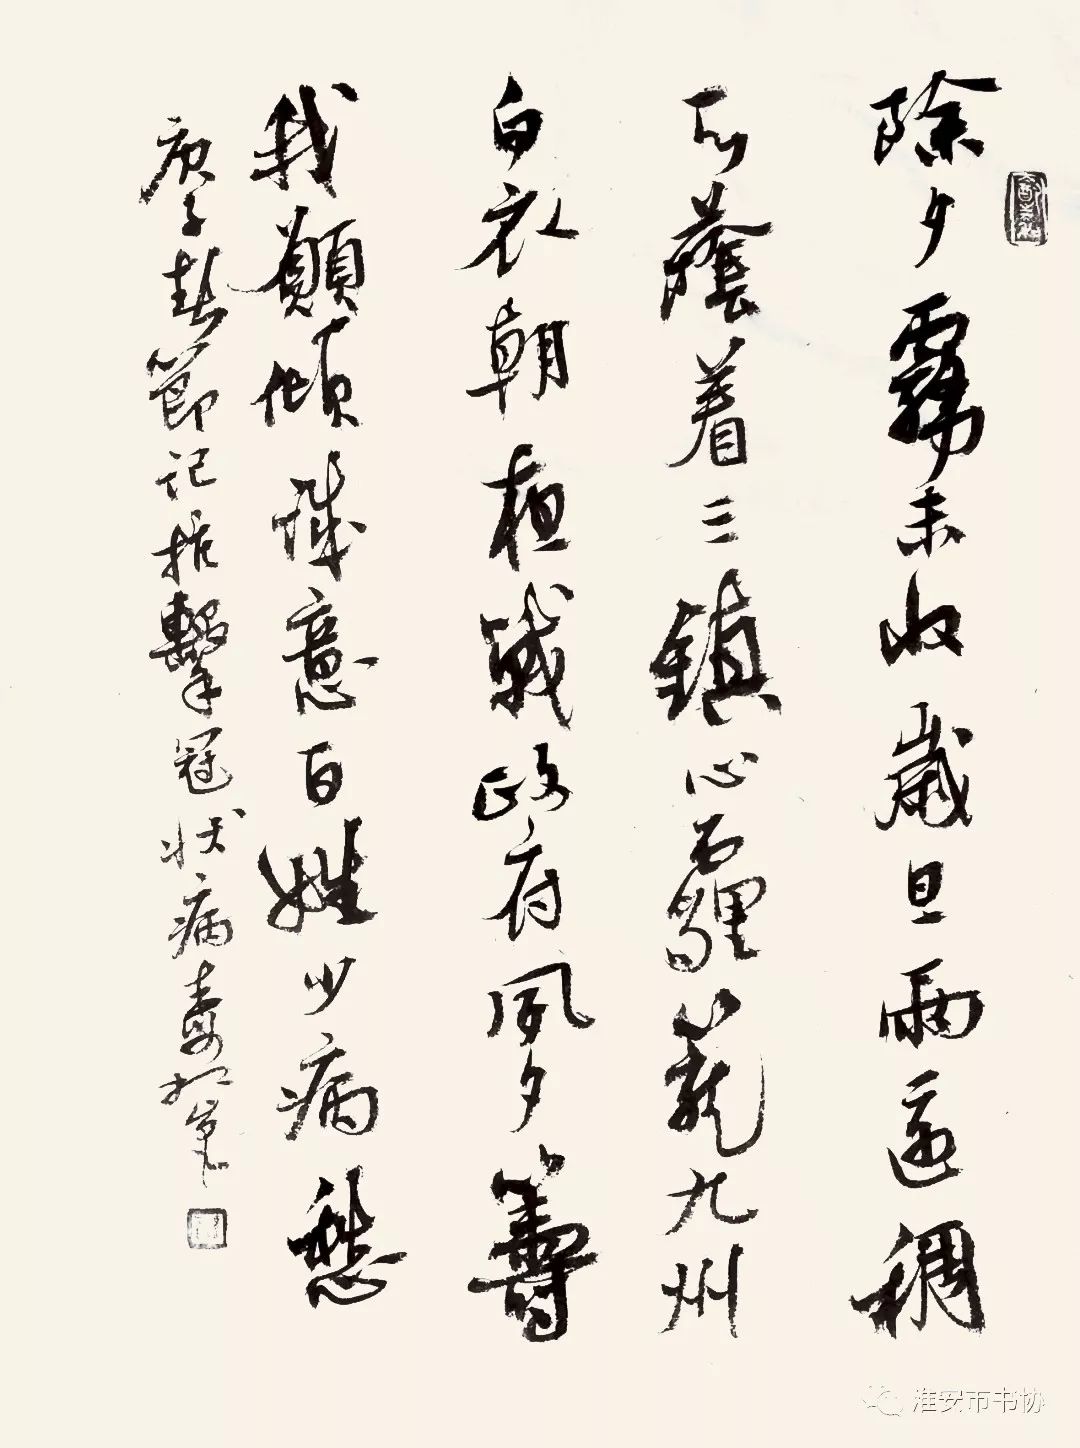 除夕霧未收歲旦雨還稠
蔭着三鎮心霾籠九州
白衣朝桓戰政府夙夕籌
我願傾誠意百姓少病愁
庚子春節記抗擊冠狀病毒
淮安市书协